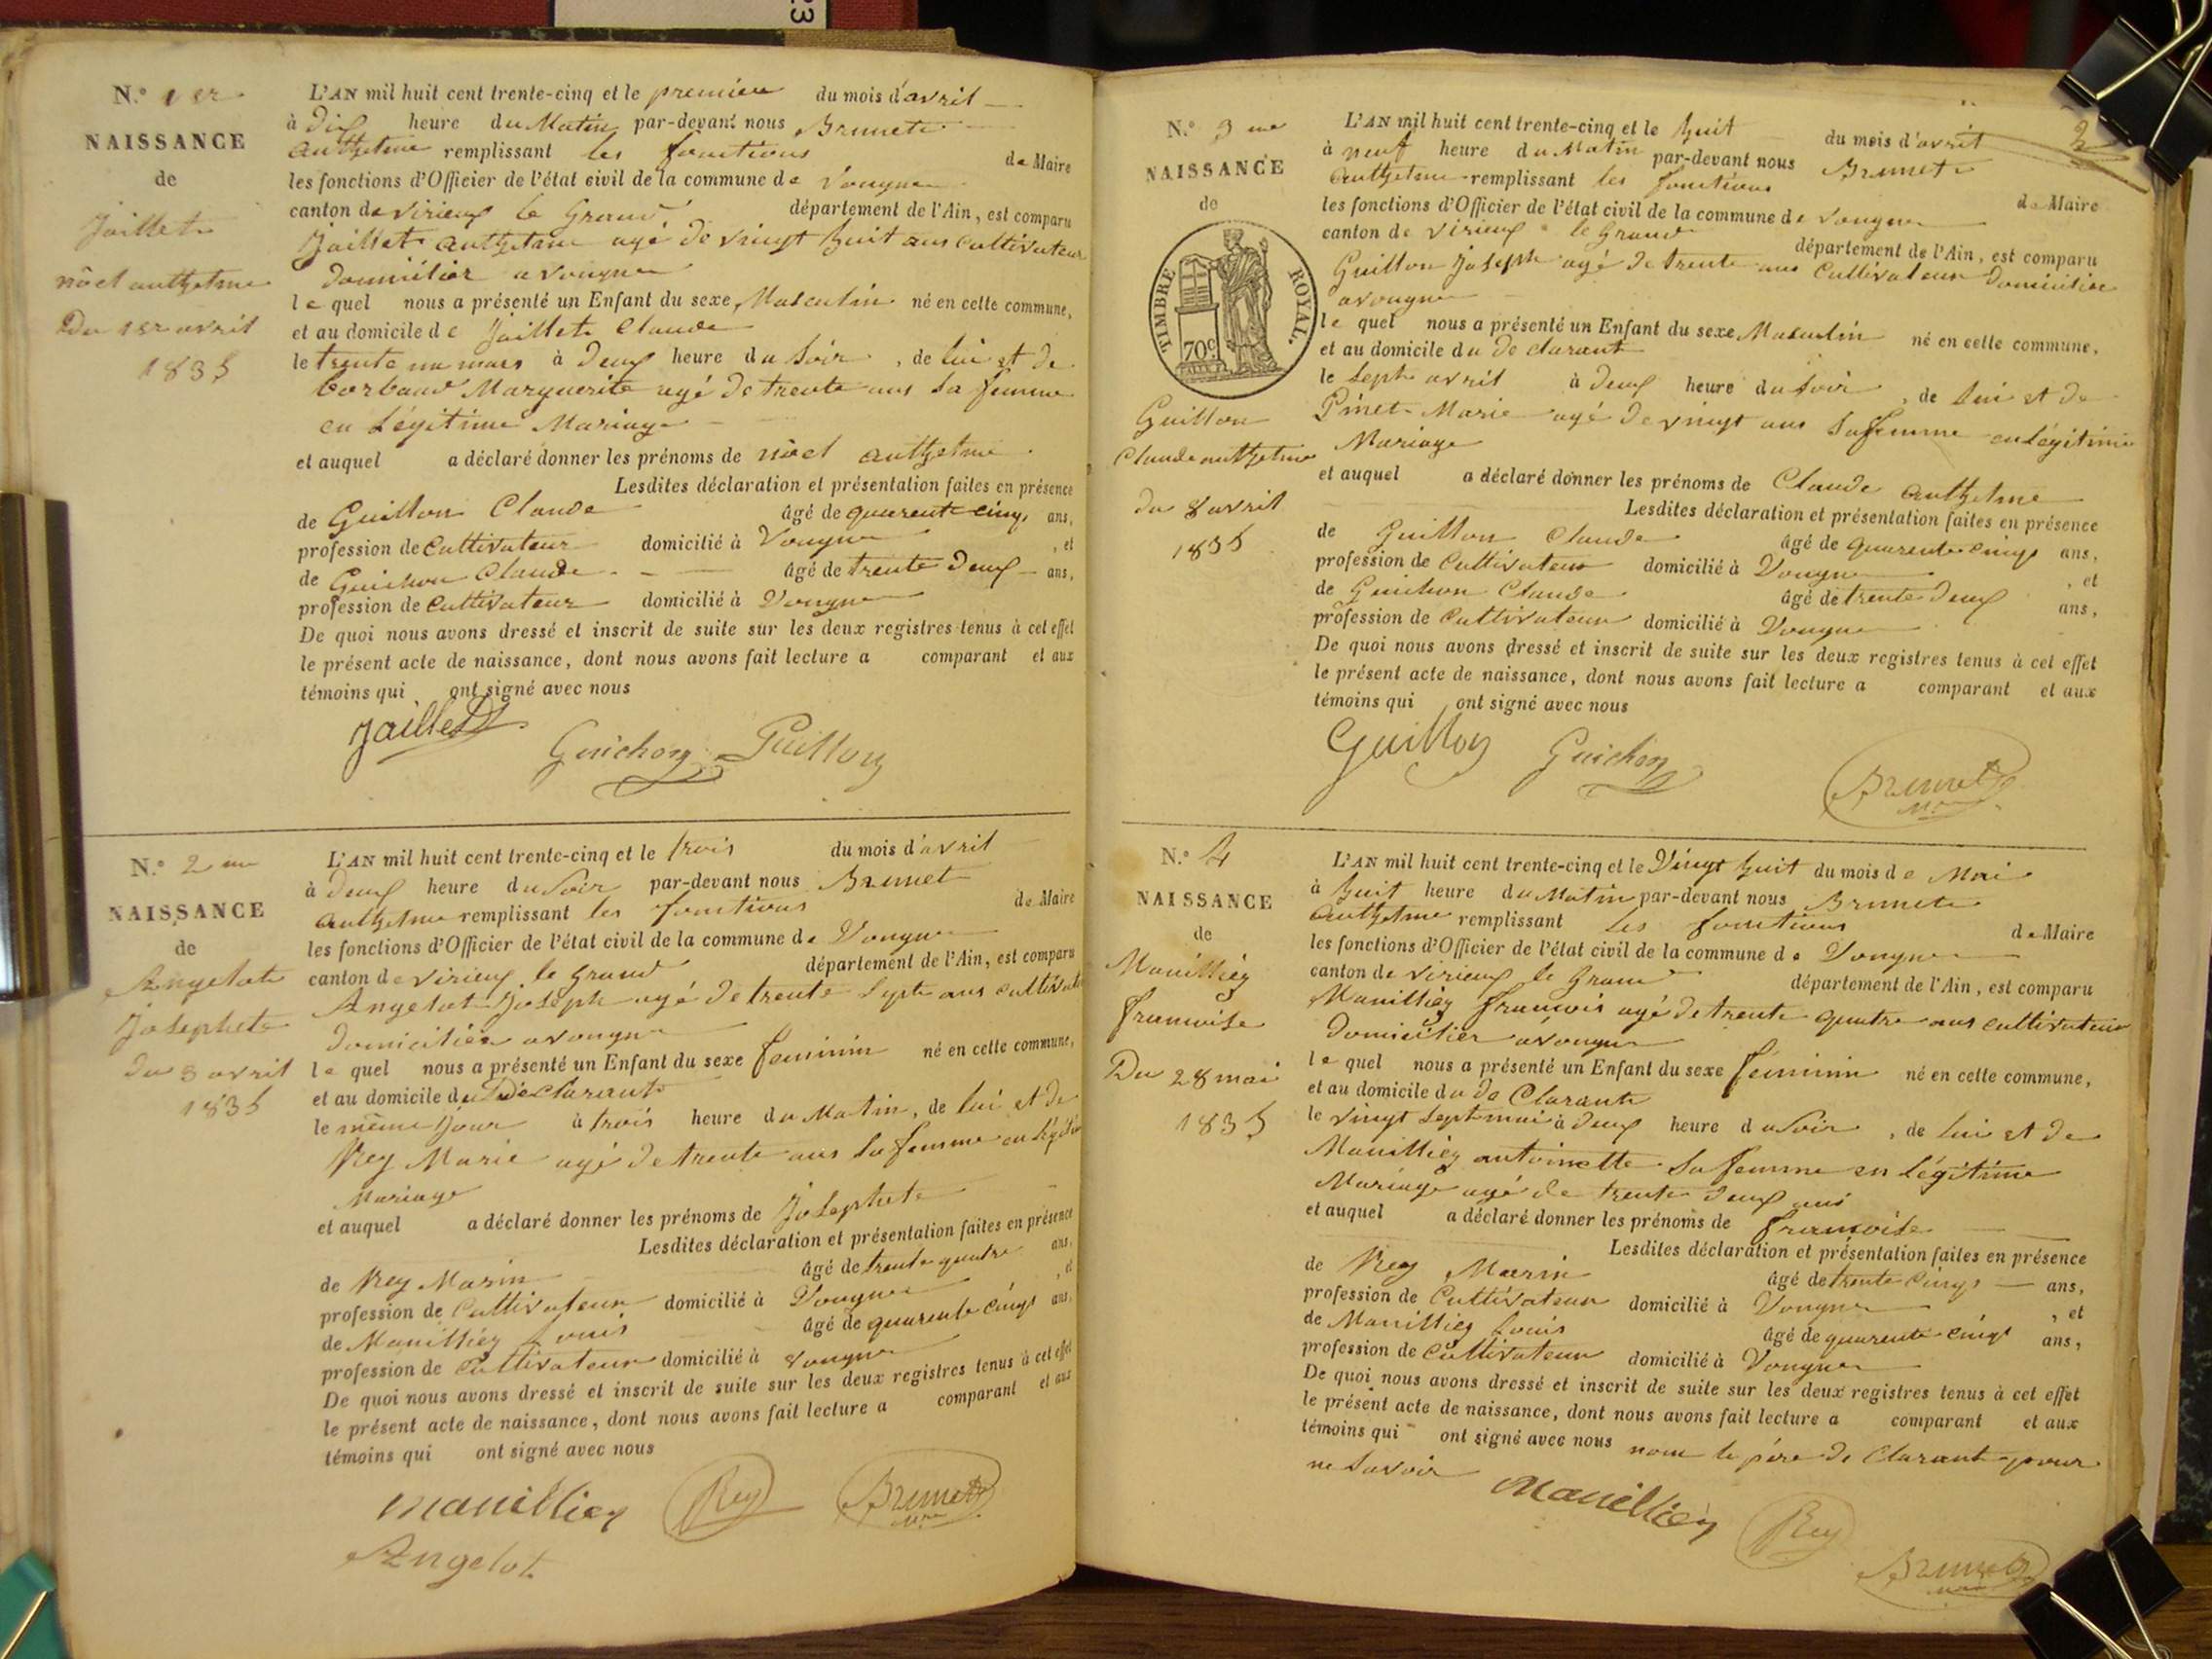 23
N.o 1er
NAISSANCE
de
Jaillet
nöel anthelme
Du 1er avril
1835
L'AN mil huit cent trente-cinq et le premier du mois d'avril
à dix heure du Matin par-devant nous Brunet
anthelme remplissant les fonctions de Maire
les fonctions d'Officier de l'état civil de la commune de Vongne
canton de virieux le Grand département de l'Ain, est comparu
Jaillet anthelme agé de vingt huit ans cultivateur
domicilier a vongne
le quel nous a présenté un Enfant du sexe Masculin né en cette commune,
et au domicile de Jaillet Claude
le trente un mars à deux heure du soir, de lui et de
Marguerite agé de trente ans sa femme
en Légitime Mariage
et auquel a déclaré donner les prénoms de nöel anthelme
Lesdites déclaration et présentation faites en présence
de Guillon Claude âgé de quarente cinq ans,
profession de Cultivateur domicilié à Vongne, et
de Guichon Claude âgé de trente deux ans,
profession de Cultivateur domicilié à Vongne
De quoi nous avons dressé et inscrit de suite sur les deux registres tenus à cet effet
le présent acte de naissance, dont nous avons fait lecture a comparant et aux
témoins qui ont signé avec nous
Jaillet
Guichon Guillon
N.o 2me
NAISSANCE
de
Angelot
Josephete
du 3 avril
1835
L'AN mil huit cent trente-cinq et le trois du mois d'avril
à deux heure du soir par-devant nous Brunet
anthelme remplissant les fonctions de Maire
les fonctions d'Officier de l'état civil de la commune de Vongne
canton de virieux le grand département de l'Ain, est comparu
Angelot Joseph agé de trente sept ans cultivat
domicilier a vongne
le quel nous a présenté un Enfant du sexe feminin né en cette commune,
et au domicile du Déclarant
le même Jour à trois heure du Matin, de lui et de
Rey Marie agé de trente ans sa femme en légiti
Mariage
et auquel a déclaré donner les prénoms de Josephete
Lesdites déclaration et présentation faites en présence
de Rey Marin âgé de trente quatre ans,
profession de Cultivateur domicilié à Vongne, et
de Manilliey Louis âgé de quarente cinq ans,
profession de Cultivateur domicilié à vongne
De quoi nous avons dressé et inscrit de suite sur les deux registres tenus à cet effet
le présent acte de naissance, dont nous avons fait lecture a comparant et aux
témoins qui ont signé avec nous
Manilliey Rey Brunet
Angelot
N.o 3me
NAISSANCE
de
TIMBRE ROYAL.
70c
Guillon
Claude anthelme
du 8 avril
1835
L'AN mil huit cent trente-cinq et le huit du mois d'avril
à neuf heure du Matin par-devant nous Brunet
anthelme remplissant les fonctions de Maire
les fonctions d'Officier de l'état civil de la commune de Vongne
canton de virieux le Grand département de l'Ain, est comparu
Guillon Joseph agé de trente ans Cultivateur Domicilier
a vongne
le quel nous a présenté un Enfant du sexe Masculin né en cette commune,
et au domicile du de clarant
le Sept avril à deux heure du soir, de lui et de
Pinet Marie agé de vingt ans sa femme en Légitime
Mariage
et auquel a déclaré donner les prénoms de Claude anthelme
Lesdites déclaration et présentation faites en présence
de Guillon Claude âgé de quarente cinq ans,
profession de Cultivateur domicilié à Vongne, et
de Guichon Claude âgé de trente deux ans,
profession de Cultivateur domicilié à Vongne
De quoi nous avons dressé et inscrit de suite sur les deux registres tenus à cet effet
le présent acte de naissance, dont nous avons fait lecture a comparant et aux
témoins qui ont signé avec nous
Guillon Guichon Brunet
N.o 4
NAISSANCE
de
Manilliey
francoise
Du 28 mai
1835
L'AN mil huit cent trente-cinq et le Vingt huit du mois de Mai
à huit heure du Matin par-devant nous Brunet
anthelme remplissant les fonctions de Maire
les fonctions d'Officier de l'état civil de la commune de Vongne
canton de virieux le Grand département de l'Ain, est comparu
Manilliey francois agé de trente quatre ans cultivateur
Domicilier a vongne
le quel nous a présenté un Enfant du sexe féminin né en cette commune,
et au domicile du de Clarant
le vingt Sept mai à deux heure du soir, de lui et de
Manilliey antoinette sa femme en Légitime
Mariage agé de trente deux ans
et auquel a déclaré donner les prénoms de francoise
Lesdites déclaration et présentation faites en présence
de Rey Marin âgé de trente cinq ans,
profession de Cultivateur domicilié à Vongne, et
de Manilliey Louis âgé de quarente cinq ans,
profession de Cultivateur domicilié à Vongne
De quoi nous avons dressé et inscrit de suite sur les deux registres tenus à cet effet
le présent acte de naissance, dont nous avons fait lecture a comparant et aux
témoins qui ont signé avec nous non le père de Clarant pour
ne savoir
Manilliey Rey
Brunet